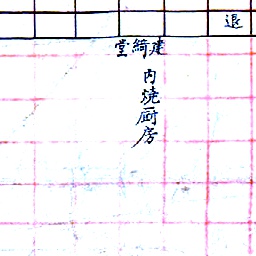 退
建綺堂
内燒厨房